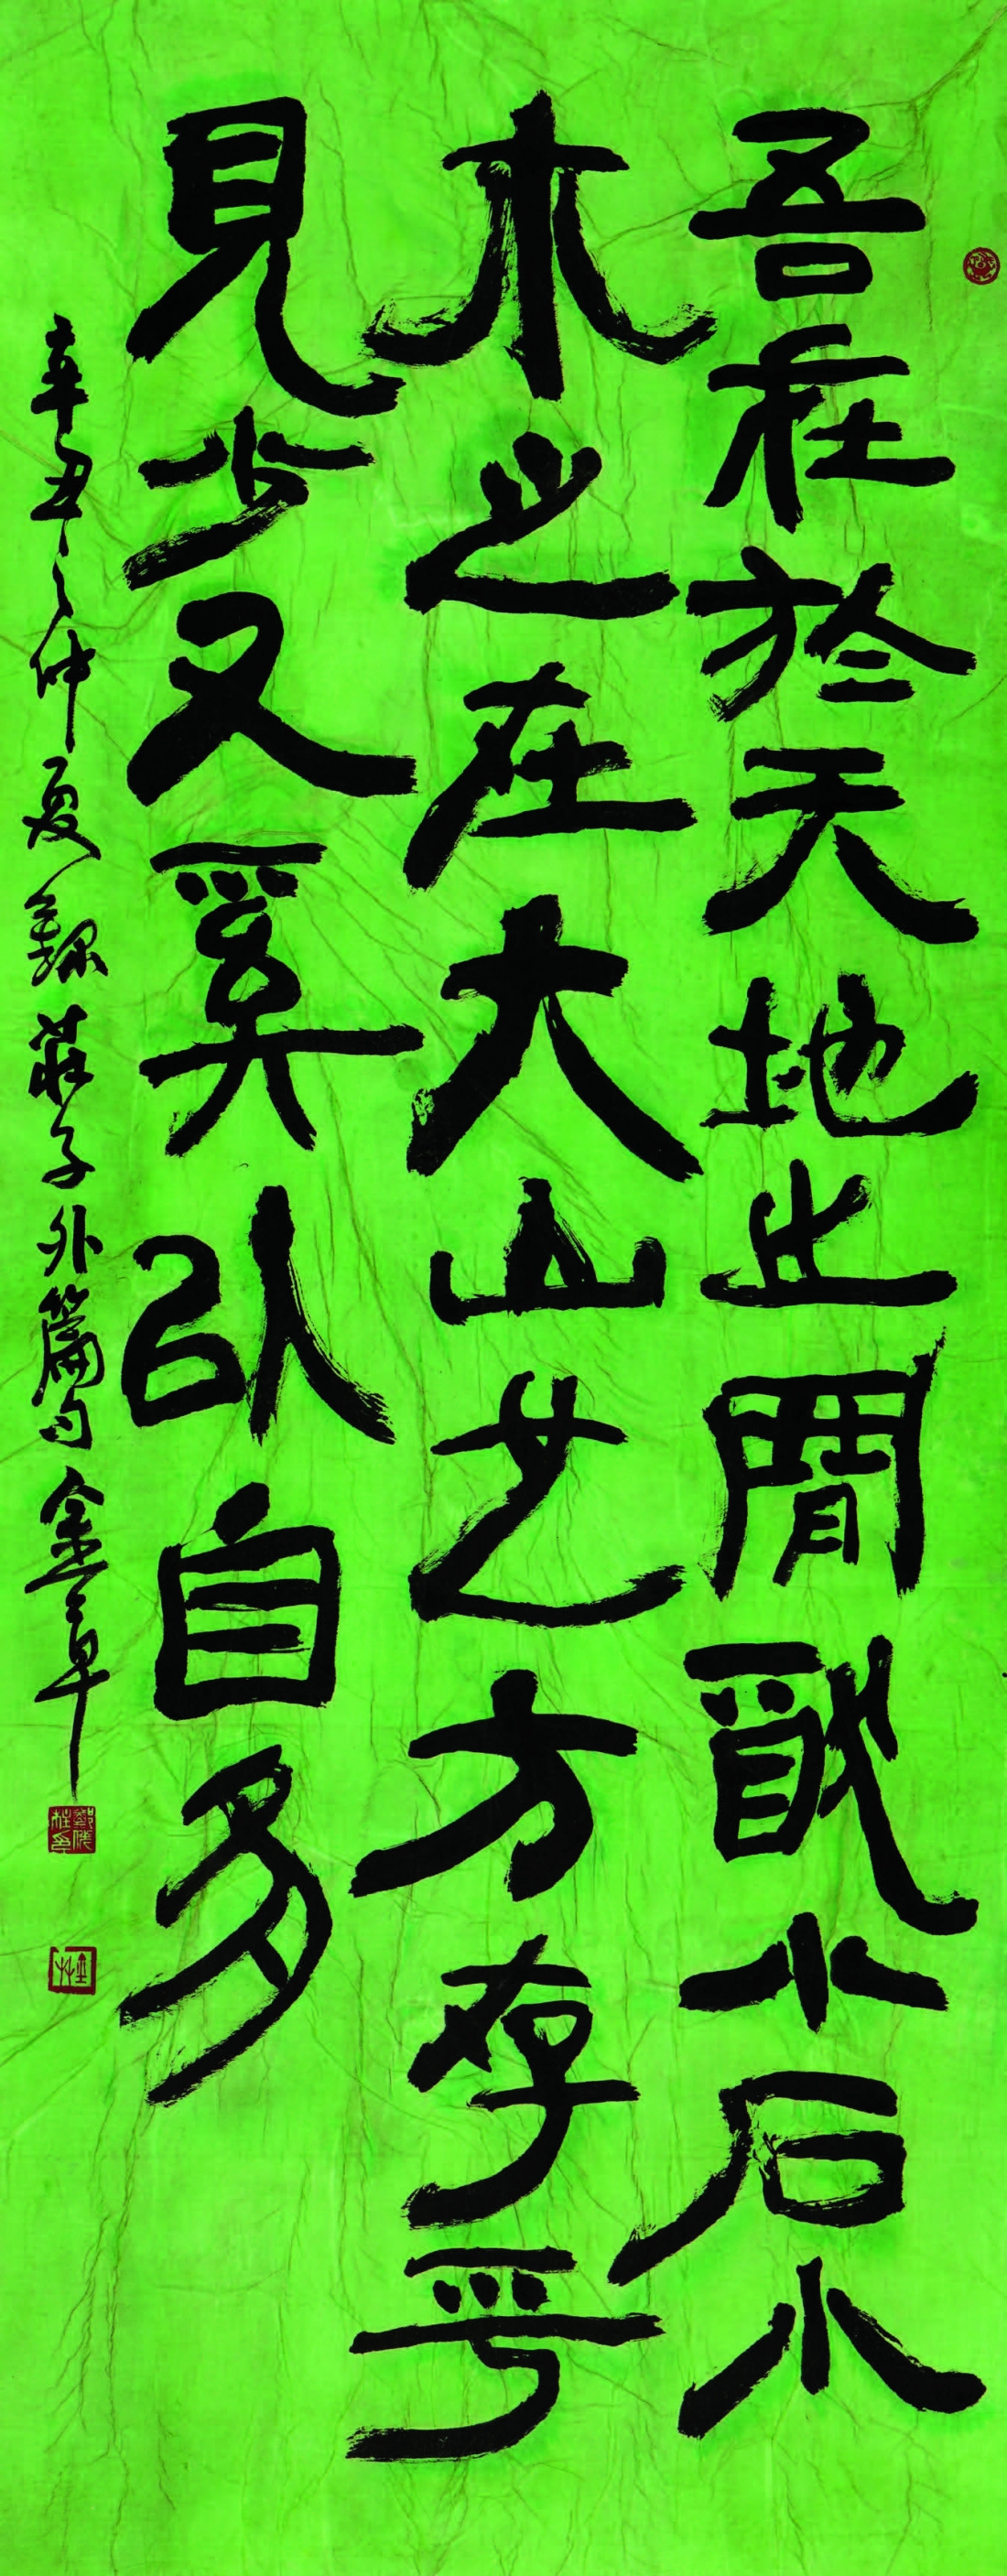 吾在於天地之閒猷小石小
木之在大山也方存乎
見少又奚以自多
辛丑之仲夏録莊子外篇句金